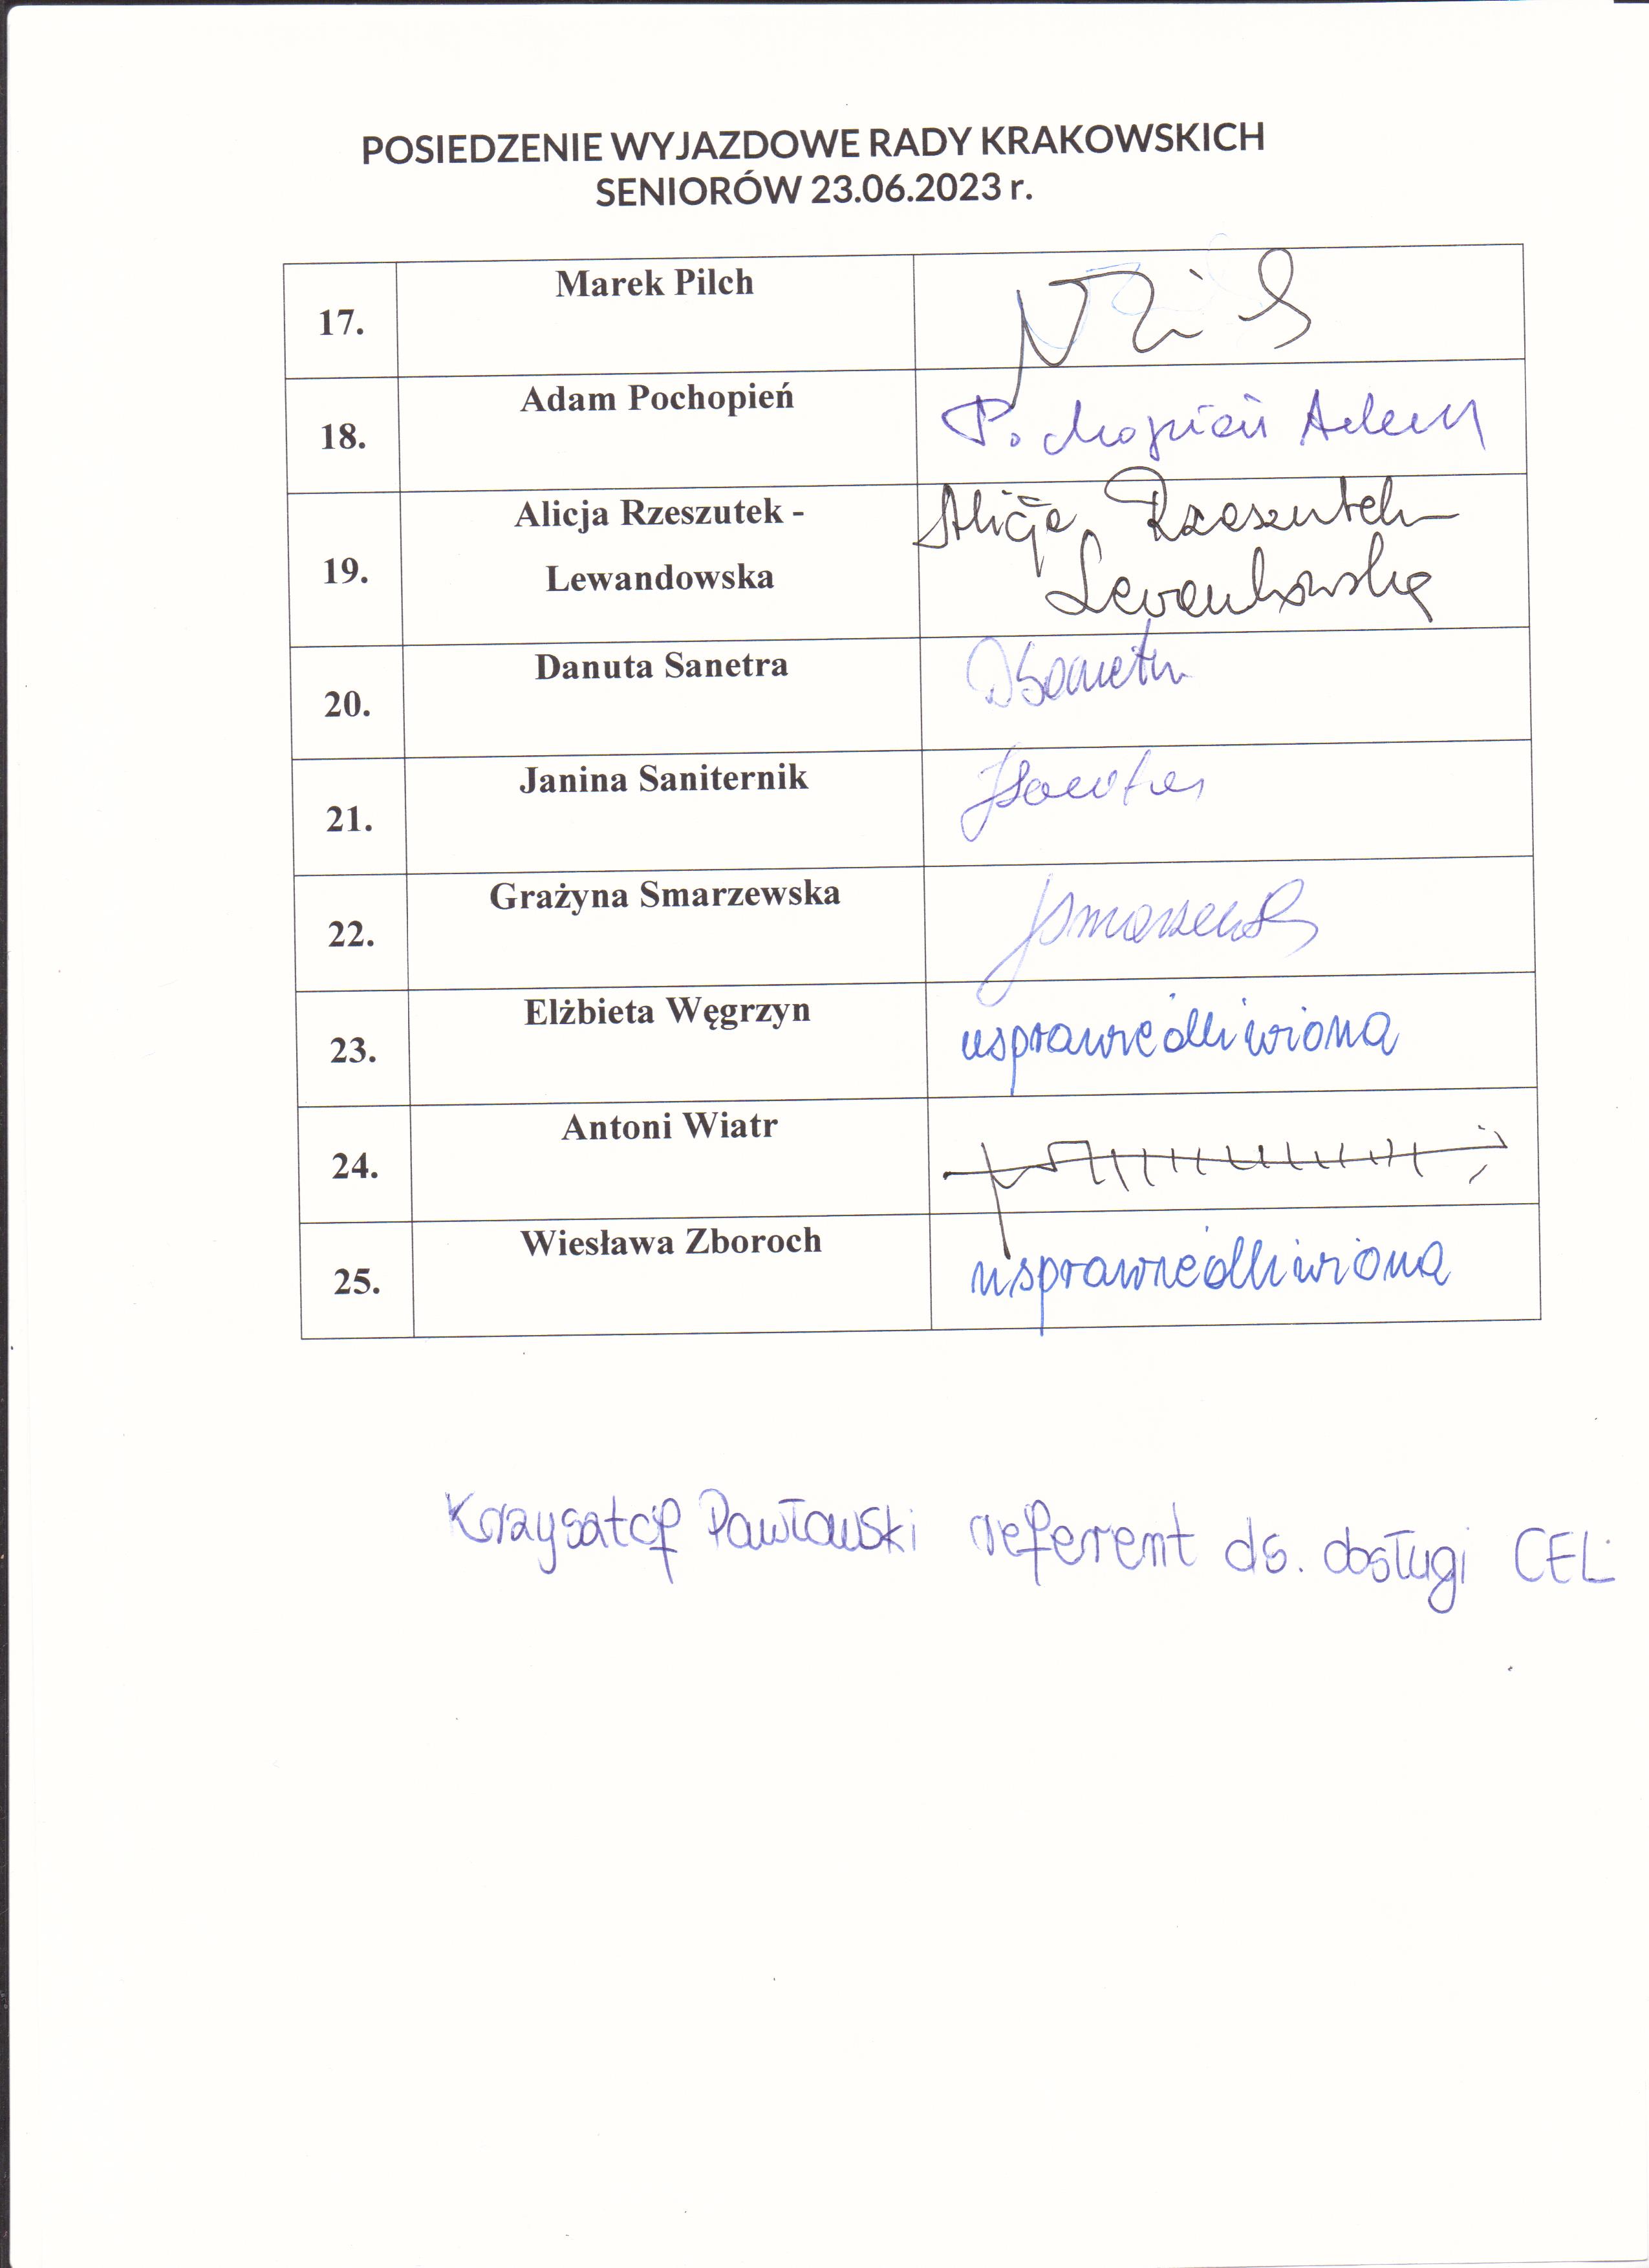 POSIEDZENIE WYJAZDOWE RADY KRAKOWSKICH
SENIORÓW 23.06.2023 r.
17. Marek Pilch
18. Adam Pochopień Pochopień Adam
19. Alicja Rzeszutek - Alicja Rzeszutek
Lewandowska Lewandowska
20. Danuta Sanetra DSanetra
21. Janina Saniternik
22. Grażyna Smarzewska
23. Elżbieta Węgrzyn usprawiedliwiona
24. Antoni Wiatr
25. Wiesława Zboroch usprawiedliwiona
Krzysztof Pawłowski referent ds. obsługi CEL